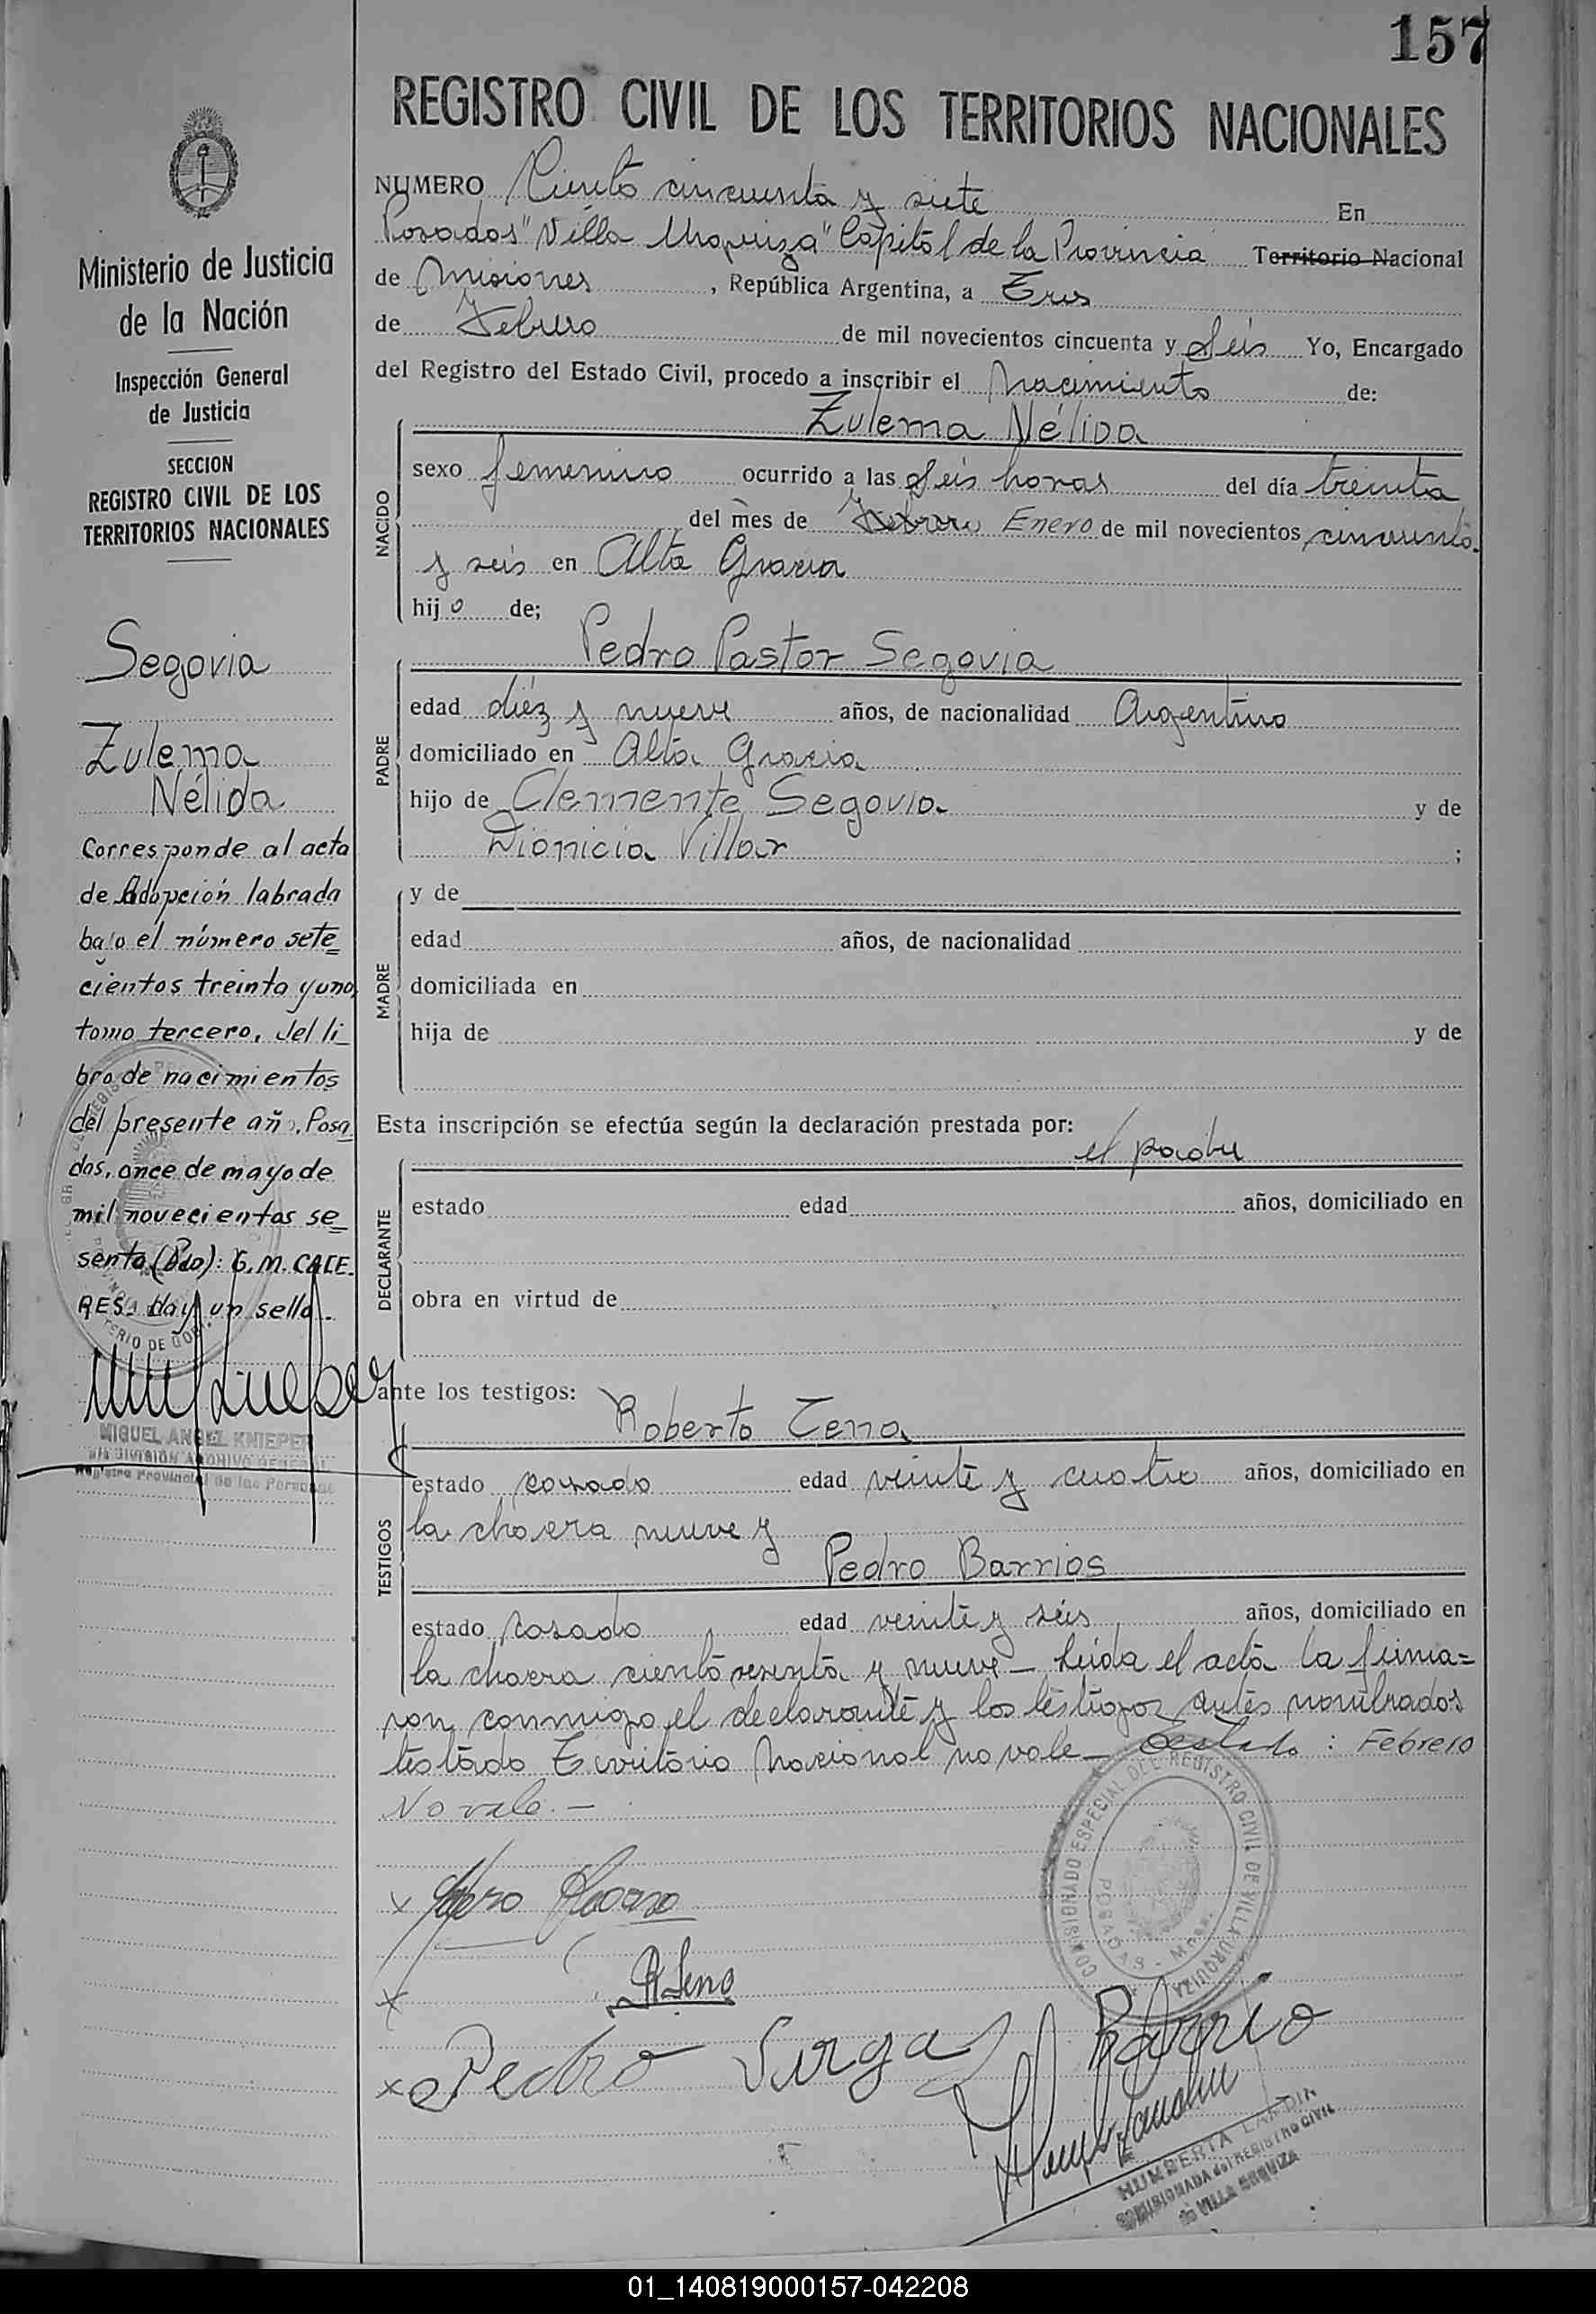 157
REGISTRO CIVIL DE LOS TERRITORIOS NACIONALES
NUMERO Ciento cincuenta y siete En
Posadas "Villa Urquiza" Capital de la Provincia Territorio Nacional
de Misiones, República Argentina, a Tres
de Febrero de mil novecientos cincuenta y Seis Yo, Encargado
del Registro del Estado Civil, procedo a inscribir el Nacimiento de:
Zulema Nélida
NACIDO
sexo femenino ocurrido a las Seis horas del día treinta
del mes de Febrero Enero de mil novecientos cincuenta
y seis en Alta Gracia
hijo de;
Pedro Pastor Segovia
PADRE
edad diéz y nueve años, de nacionalidad Argentino
domiciliado en Alta Gracia
hijo de Clemente Segovia y de
Dionicia Villar ;
MADRE
y de
edad años, de nacionalidad
domiciliada en
hija de y de
Esta inscripción se efectúa según la declaración prestada por:
el padre
DECLARANTE
estado edad años, domiciliado en
obra en virtud de
ante los testigos:
Roberto Tena
TESTIGOS
estado casado edad veinte y cuatro años, domiciliado en
la chacra nueve y
Pedro Barrios
estado casado edad veinte y séis años, domiciliado en
la chacra ciento sesenta y nueve — Leida el acta la firma=
ron conmigo el declarante y los testigos antes nombrados
testado Territorio Nacional no vale — Testado : Febrero
No vale. —
x
x R Tena
x Pedro Barrio
COMISIONADO ESPECIAL DEL REGISTRO CIVIL DE VILLA URQUIZA
POSADAS - Mnes.
HUMBERTA LANDIN
COMISIONADA del REGISTRO CIVIL
de VILLA URQUIZA
Ministerio de Justicia
de la Nación
Inspección General
de Justicia
SECCION
REGISTRO CIVIL DE LOS
TERRITORIOS NACIONALES
Segovia
Zulema
Nélida
Corresponde al acta
de Adopción labrada
bajo el número sete_
cientos treinta y uno,
tomo tercero, del li_
bro de nacimientos
del presente año. Posa_
das, once de mayo de
mil novecientos se_
senta (Fdo): G. M. CACE_
RES. Hay un sello.
MIGUEL ANGEL KNIEPER
DIVISION ARCHIVO GENERAL
Registro Provincial de las Personas
01_140819000157-042208